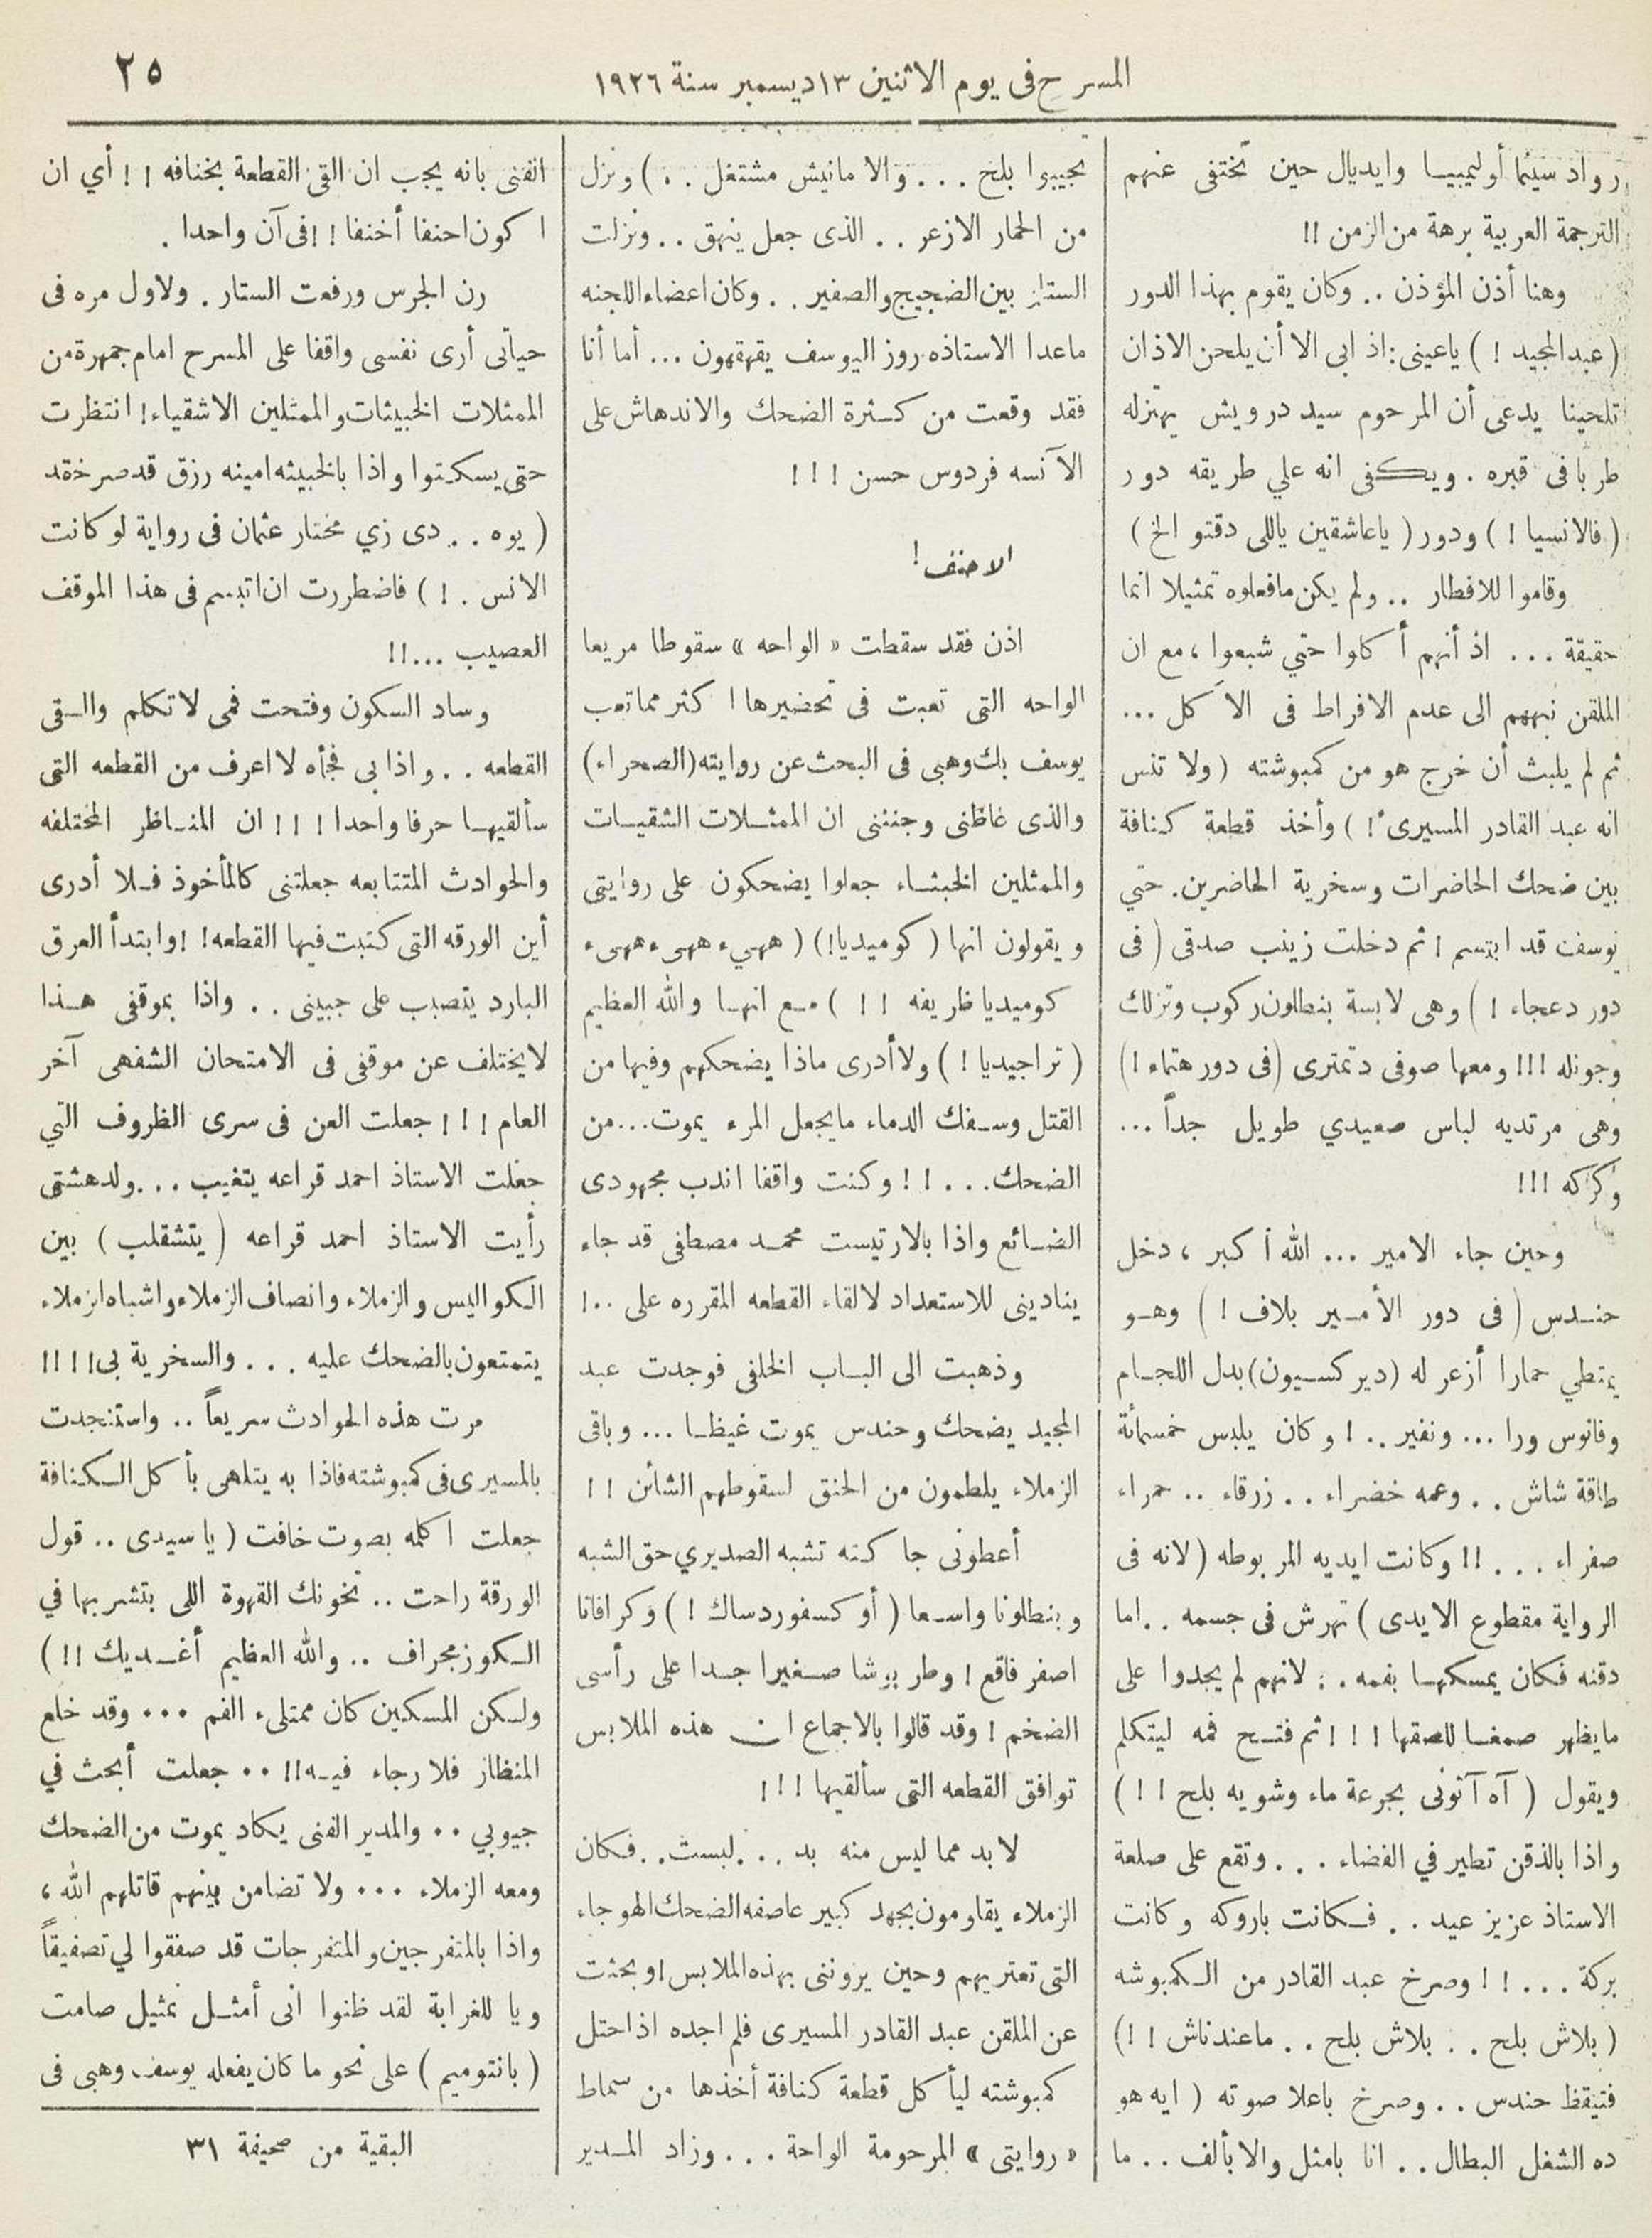 المسرح فى يوم الاثنين ١٣ ديسمبر سنة ١٩٢٦
٢٥
رواد سينما أوليمبيا وايديال حين تختفى عنهم
الترجمة العربية برهة من الزمن !!
وهنا أذن المؤذن .. وكان يقوم بهذا الدور
( عبد المجيد ! ) ياعينى : اذ ابى الا أن يلحن الاذان
تلحينا يدعى أن المرحوم سيد درويش يهتزله
طربا فى قبره . ويكفى انه علي طريقه دور
( فالانسيا ! ) ودور ( ياعاشقين ياللى دقتو الخ )
وقاموا للافطار .. ولم يكن مافعلوه تمثيلا انما
حقيقة ... اذ أنهم أكلوا حتي شبعوا ، مع ان
الملقن نبههم الى عدم الافراط فى الاكل ...
ثم لم يلبث أن خرج هو من كمبوشته ( ولا تنس
انه عبد القادر المسيرى ! ) وأخذ قطعة كنافة
بين ضحك الحاضرات وسخرية الحاضرين . حتي
يوسف قد ابتسم ! ثم دخلت زينب صدقى ( فى
دور دعجاء ! ) وهى لابسة بنطلون ركوب وتزلك
وجونله !!! ومعها صوفى دتمترى ( فى دور هتماء ! )
وهى مرتديه لباس صعيدي طويل جداً ...
وكركه !!!
وحين جاء الامير ... الله أكبر ، دخل
حنـدس ( فى دور الأمـير بلاف ! ) وهـو
يمتطي حمارا أزعر له ( ديركسـيون ) بدل اللجـام
وفانوس ورا ... ونفير .. ! وكان يلبس خمسمائة
طاقة شاش .. وعمه خضراء .. زرقاء .. حمراء
صفراء ... !! وكانت ايديه المربوطه ( لانه فى
الرواية مقطوع الايدى ) تهرش فى جسمه .. اما
دقنه فكان يمسكهـا بفمه .. لانهم لم يجدوا على
مايظهر صمغـا للصقها ! ! ! ثم فتـح فمه ليتكلم
ويقول ( آه آتونى بجرعة ماء وشويه بلح ! ! )
واذا بالذقن تطير في الفضاء ... وتقع على صلعة
الاستاذ عزيز عيد .. فـكانت باروكه وكانت
بركة ... ! ! وصرخ عبد القادر من الـكمبوشه
( بلاش بلح .. بلاش بلح .. ماعندناش ! ! )
فتيقظ حندس .. وصرخ باعلا صوته ( ايه هو
ده الشغل البطال .. انا بامثل والا بألف .. ما
تجيبوا بلح ... والا مانيش مشتغل .. ) ونزل
من الحمار الازعر .. الذى جعل ينهق .. ونزلت
الستار بين الضجيج والصفير .. وكان اعضاء اللجنه
ماعدا الاستاذه روز اليوسف يقهقهون ... أما أنا
فقد وقعت من كـثرة الضحك والاندهاش على
الآنسه فردوس حسن ! ! !
الاحنف !
اذن فقد سقطت « الواحه » سقوطا مريعا
الواحه التى تعبت فى تحضيرها اكثر مما تعب
يوسف بك وهبى فى البحث عن روايته ( الصحراء )
والذى غاظنى وجننى ان الممثـلات الشقيـات
والممثلين الخبثـاء جعلوا يضحكون على روايتى
ويقولون انها ( كوميديا ! ) ( ههيء ههىء ههىء
كوميديا ظريفه ! ! ) مـع انهـا والله العظيم
( تراجيديا ! ) ولا أدرى ماذا يضحكهم وفيها من
القتل وسـفك الدماء مايجعل المرء يموت ... من
الضحك ... ! ! وكنت واقفا اندب مجهودى
الضـائع واذا بالارتيست محمـد مصطفى قد جاء
ينادينى للاستعداد لالقاء القطعه المقرره على .. !
وذهبت الى البـاب الخلفى فوجدت عبد
المجيد يضحك وحندس يموت غيظـا ... وباقى
الزملاء يلطمون من الحنق لسقوطهم الشائن ! !
أعطونى جاكته تشبه الصديري حق الشبه
وبنطلونا واسـعا ( أوكسفورد ساك ! ) وكرافاتا
اصفر فاقع ! وطربوشا صـغيرا جـدا على رأسى
الضخم ! وقد قالوا بالاجماع ان هذه الملابس
توافق القطعه التى سألقيها ! ! !
لابد مما ليس منه بد ... لبست .. فـكان
الزملاء يقاومون بجهد كبير عاصفه الضحك الهوجاء
التى تعتريهم وحين يروننى بهذه الملابس ! وبحثت
عن الملقن عبد القادر المسيرى فلم اجده اذ احتل
كمبوشته ليأكل قطعة كنافة أخذها من سماط
« روايتى » المرحومة الواحة ... وزاد المـدير
الفنى بانه يجب ان القى القطعة بخنافه ! ! أي ان
اكون احنفا أخنفا ! ! فى آن واحدا .
رن الجرس ورفعت الستار . ولاول مره فى
حياتى أرى نفسى واقفا على المسرح امام جمهرة من
الممثلات الخبيثات والممثلين الاشقياء ! انتظرت
حتى يسكتوا واذا بالخبيثه امينه رزق قد صرخت
( يوه .. دى زي مختار عثمان فى رواية لوكانت
الانس . ! ) فاضطررت ان اتبسم فى هذا الموقف
العصيب ... !!
وساد السكون وفتحت فمى لاتكلم والـقى
القطعه .. واذا بى فجأه لا اعرف من القطعه التى
سألقيهـا حرفا واحدا ! ! ! ان المنـاظر المختلفه
والحوادث المتتابعه جعلتنى كالمأخوذ فـلا أدرى
أين الورقه التى كتبت فيها القطعه ! ! وابتدأ العرق
البارد يتصبب على جبينى .. واذا بموقفى هـذا
لايختلف عن موقفى فى الامتحان الشفهى آخر
العام ! ! ! جعلت العن فى سرى الظروف التي
جعلت الاستاذ احمد قراعه يتغيب ... ولدهشتى
رأيت الاستاذ احمد قراعه ( يتشقلب ) بين
الـكواليس والزملاء وانصاف الزملاء واشباه الزملاء
يتمتعون بالضحك عليه ... والسخرية بى ! ! ! !
مرت هذه الحوادث سريعاً .. واستنجدت
بالمسيرى فى كمبوشته فاذا به يتلهى بأكل الـكنافة
جعلت اكلمه بصوت خافت ( يا سيدى .. قول
الورقة راحت .. تخونك القهوة اللى بتشربها في
الـكوز مجراف .. والله العظيم أغـديك !! )
ولـكن المسكين كان ممتلىء الفم ... وقد خلع
المنظار فلا رجاء فيـه !! .. جعلت أبحث في
جيوبي .. والمدير الفنى يكاد يموت من الضحك
ومعه الزملاء ... ولا تضامن بينهم قاتلهم الله ،
واذا بالمتفرجين والمتفرجات قد صفقوا لي تصفيقاً
ويا للغرابة لقد ظنوا انى أمثـل تمثيل صامت
( بانتوميم ) على نحو ما كان يفعله يوسف وهبى فى
البقية من صحيفة ٣١